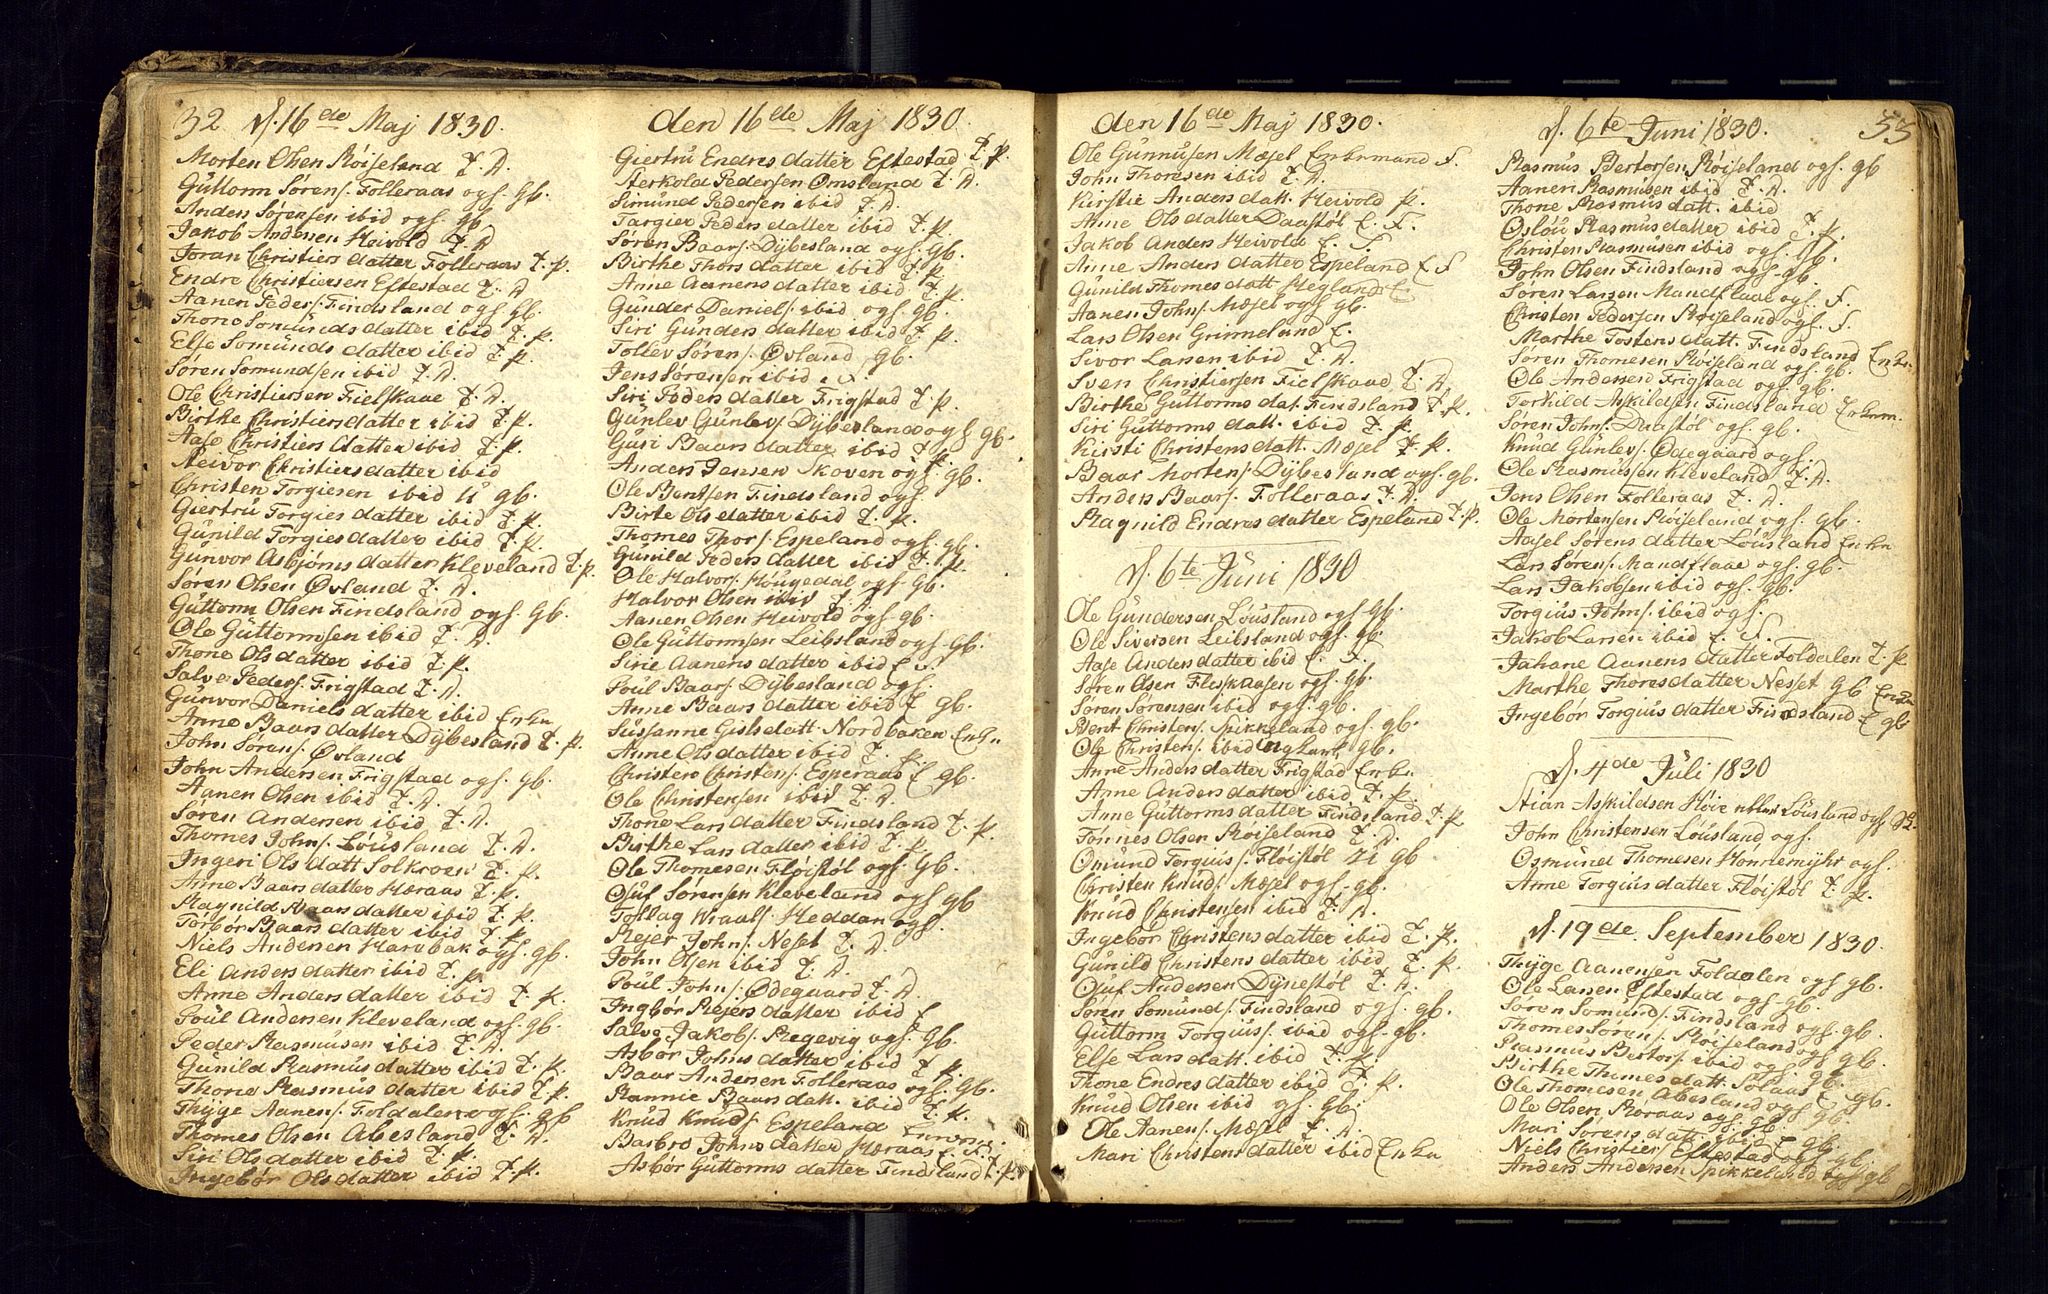 32 d. 16de Maj 1830.
Morten Olsen Røiseland T. D.
Guttorm Sørens: Folleraas ogs. gb.
Anders Sørensen ibid ogs. gb.
Jakob Andersen Heivold T. D.
Joran Christiersdatter Folleraas T. p.
Endre Christiersen Eftestad T. D.
Aanen Peders: Findsland ogs gb.
Thone Somundsdatter ibid T. p.
Else Somundsdatter ibid T. p.
Søren Somundsen ibid T. D.
Ole Christiersen Fielskaae T. D.
Birthe Christiersdatter ibid T. p.
Aase Christiersdatter ibid T. p.
Reivor Christiersdatter ibid
Christen Torgiesen ibid U gb.
Giertru Torgiesdatter ibid T. p.
Gunild Torgiesdatter ibid T. p.
Gunvor Asbjørnsdatter Kleveland T. p.
Søren Olsen Øvland T. D.
Guttorm Olsen Findsland ogs. gb.
Ole Guttormsen ibid T. D.
Thone Olsdatter ibid T. p.
Salve Peders: Frigstad T. D.
Gunvor Danielsdatter ibid Enkn
Anne Baarsdatter Dybesland T. p.
John Sørens: Øvland
John Andersen Frigstad ogs. gb.
Aanen Olsen ibid T. D.
Søren Andersen ibid T. D.
Thomes Johns: Løusland T. D.
Ingeri Olsdatt Solkroen T. p.
Anne Baarsdatter Heraas T. p.
Ragnild Baarsdatter ibid T. p.
Torbør Baarsdatter ibid T. p.
Niels Andersen Harebak ogs. gb.
Eli Andersdatter ibid T. p.
Anne Andersdatter ibid T. p.
Poul Andersen Kleveland ogs. gb.
Peder Rasmusen ibid T. D.
Gunild Rasmusdatter ibid T. p.
Thone Rasmusdatter ibid T. p.
Thyge Aanens: Foldalen ogs. gb
Thomes Olsen Abesland T. D.
Siri Olsdatter ibid T. p.
Ingebør Olsdatter ibid T. p.
den 16de Maj 1830.
Giertru Endresdatter Eftestad T. p.
Aerkold Pedersen Omsland T. D.
Simund Pedersen ibid T. D.
Targier Pedersdatter ibid T. p.
Søren Baars: Dybesland ogs. gb.
Birthe Thorsdatter ibid T. p.
Anne Aanensdatter ibid T. p.
Gunder Daniels: ibid ogs. gb.
Siri Gundersdatter ibid T. p.
Tollev Sørens: Øvland gb.
Jens Sørensen ibid E. F.
Siri Pedersdatter Frigstad T. p.
Gunlev Gunlevs: Dybesland ogs gb.
Guri Baarsdatter ibid T. p.
Anders Jensen Skoven ogs. gb.
Ole Bentsen Findsland ogs.
Birte Olsdatter ibid T. p.
Thomes Thors: Espeland ogs. gb.
Gunild Pedersdatter ibid T. p.
Ole Halvors: Hougedal ogs. gb.
Halvor Olsen ibid T. D.
Aanen Olsen Heivold ogs gb.
Ole Guttormsen Leibsland ogs. gb.
Sirie Aanensdatter ibid E F.
Poul Baars: Dybesland ogs.
Anne Baarsdatter ibid E gb.
Susanne Gislsdatt. Nordbaken Enkn
Anne Olsdatter ibid T. p.
Christen Christens: Esperaas E gb.
Ole Christensen ibid T. D.
Thone Larsdatter Findsland T. p.
Birthe Larsdatter ibid T. p.
Ole Thomesen Fløistøl ogs. gb.
Oluf Sørensen Kleveland ogs gb
Tollag Kraals: Heddan ogs.
Rejer Johns: Neset T. D.
John Olsen ibid T. D.
Poul Johns: Ødegaard T. D.
Ingbør Rejersdatter ibid E
Salve Jakobs: Regevig ogs. gb.
Asbør Johnsdatter ibid T. p.
Baar Andersen Folleraas ogs. gb.
Rannie Baarsdatt. ibid T. p.
Knud Knuds: Espeland Enkem:
Barbro Johnsdatter Heraas E. F.
Asbør Guttormsdatter Findsland T. p.
den 16de Maj 1830.
Ole Gunnusen Mæsel Enkemand F.
John Thoresen ibid T. D.
Kirstie Andersdatt. Heivold p.
Anne Olsdatter Daastøl E. F.
Jakob Anders Heivold E. F.
Anne Andersdatter Espeland E F
Gunild Thomesdatt Hegland E
Aanen Johns: Mæsel ogs gb.
Lars Olsen Grimeland E.
Sivor Larsen ibid T. D.
Sven Christiersen Fielskaae T. D.
Birthe Guttormsdat. Findsland T. p.
Siri Guttormsdatt. ibid T. p.
Kirsti Christensdatt. Mæsel T. p.
Baar Mortens: Dybesland ogs. gb.
Anders Baars: Folleraas T. D.
Ragnild Endresdatter Espeland T. p.
d. 6te Juni 1830
Ole Gundersen Løusland ogs. gb.
Ole Siversen Leibsland ogs. gb.
Aase Andersdatter ibid E. F.
Søren Olsen Fleskaasen ogs. gb.
Søren Sørensen ibid ogs. gb.
Bent Christens: Spikkeland ogs. gb.
Ole Christens: ibid ungkarl gb.
Anne Andersdatter Frigstad Enkn
Anne Andersdatter ibid T. p.
Anne Guttormsdatter Findsland T. p
Tønnes Olsen Røiseland T. D.
Omund Torgius: Fløistøl U gb
Christen Knuds: Mæsel ogs. gb.
Knud Christensen ibid T. D.
Ingebor Christensdatter ibid T. p.
Gunild Christensdatter ibid T. p.
Oluf Andersen Dynestøl T. D.
Søren Somunds: Findsland ogs. gb.
Guttorm Torgius: ibid ogs. gb.
Else Larsdatt. ibid T. p.
Thone Endresdatter ibid T. p.
Knud Olsen ibid ogs. gb.
Ole Aanens: Mæsel T. D.
Mari Christensdatter ibid Enkn
d. 6te Juni 1830. 33
Rasmus Bertorsen Røiseland ogs. gb
Aanen Rasmusen ibid T. D.
Thone Rasmusdatt. ibid
Osløu Rasmusdatter ibid T. p.
Christen Rasmusen ibid ogs. gb.
John Olsen Findsland ogs. gb.
Søren Larsen Mandflaae ogs. F.
Christen Pedersen Røiseland ogs. F.
Marthe Tostensdatt. Findsland Enkn.
Søren Thomesen Røiseland ogs. gb.
Ole Andersen Frigstad ogs. gb.
Torkild Askildsen Findsland Enkem.
Søren Johns: Daastøl ogs. gb.
Knud Gunlevs: Ødegaard ogs.
Ole Rasmussen Kleveland T. D.
Jens Olsen Folleraas T. D.
Ole Mortensen Røiseland ogs. gb.
Aasel Sørensdatter Løusland Enkn
Lars Sørens: Mandflaae ogs. gb.
Lars Jakobsen ibid ogs. gb.
Torgius Johns: ibid ogs.
Jakob Larsen ibid E. F.
Jahane Aanensdatter Foldalen T. p
Marthe Thoresdatter Nesset gb Enkn
Ingebør Torgiusdatter Findsland E gb
d. 4de Juli 1830
Stian Askildsen Høie Løusland ogs gb.
John Christensen Løusland ogs.
Osmund Thomesen Honnemyhr ogs.
Anne Torgiusdatter Fløistøl T. p.
d. 19de September 1830.
Thyge Aanensen Foldalen ogs gb.
Ole Larsen Eftestad ogs. gb.
Søren Somunds: Findsland ogs. gb.
Thomes Sørens: Røiseland ogs gb.
Rasmus Bertors: ibid ogs. gb.
Birthe Thimesdatt. Solaas E gb.
Ole Thomesen Abesland ogs gb.
Ole Olsen Roraas ogs. gb.
Mari Sørensdatt. ibid E gb
Niels Christiers: Eftestad ogs gb
Anders Andersen Spikkeland ogs gb